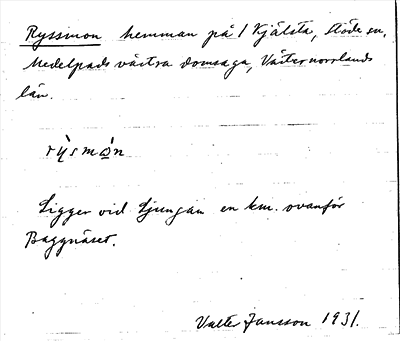 Ryssmon hemman på / Kjälsta, Stöde sn,
Medelpads västra domsaga, Västernorrlands
län.
rỳsmòn
Ligger vid Ljungan en km. ovanför
Baggnäset.
Valter Jansson 1931.